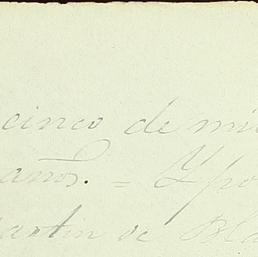 cinco de mi
años. = Ypo
artin de Bla